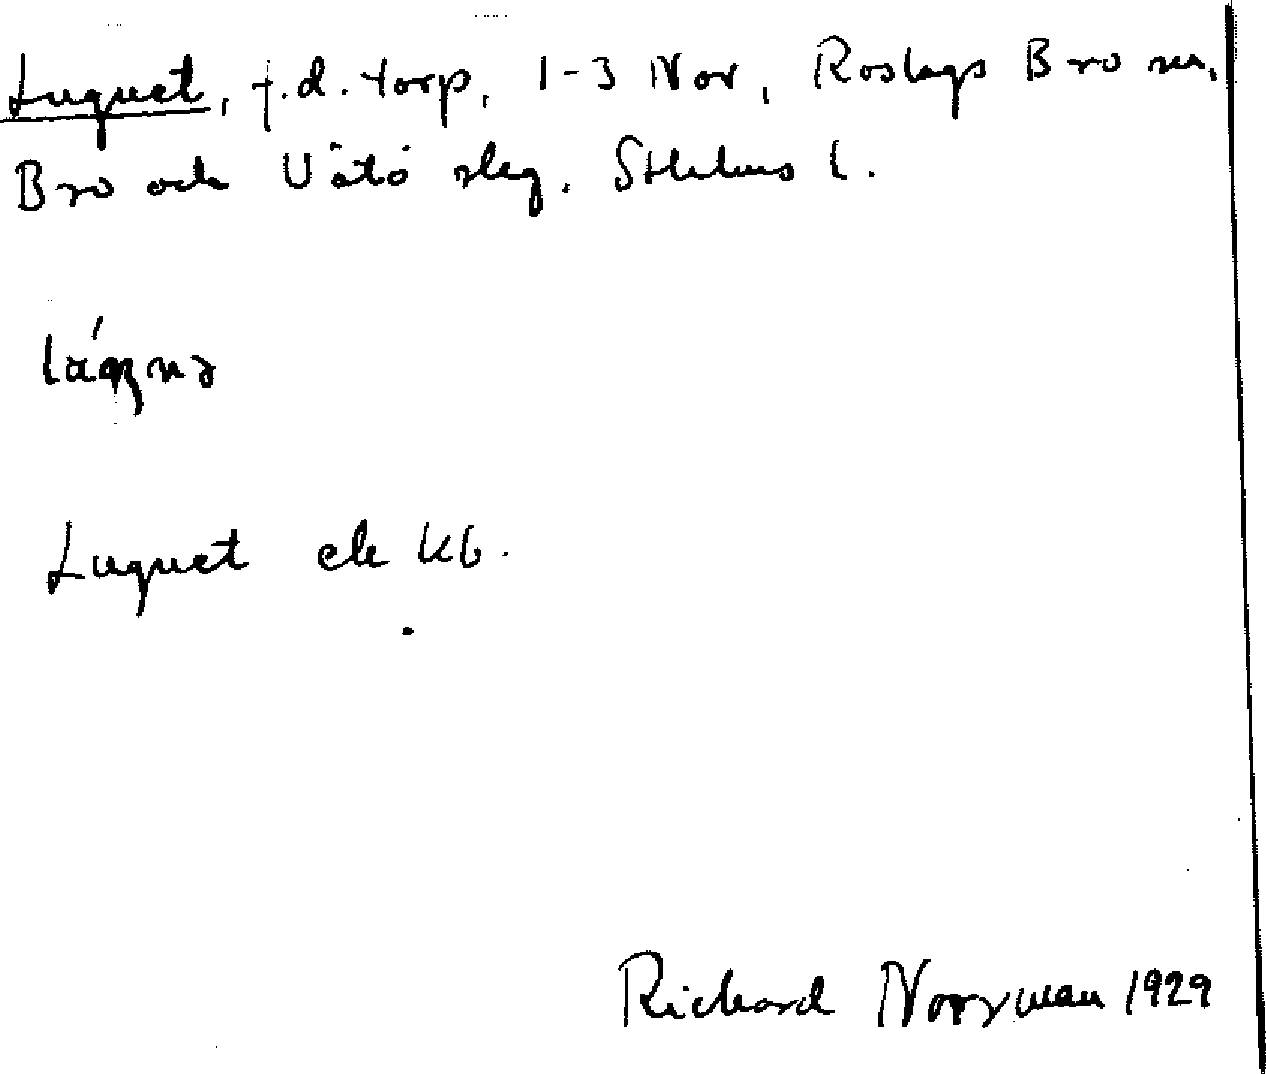 Luquet, f.d. torp, 1-3 Nor, Roslags Bro sn,
Bro och Vätö slg. Sthlms l.
Luquet ek kb.
Richard Norrman 1929